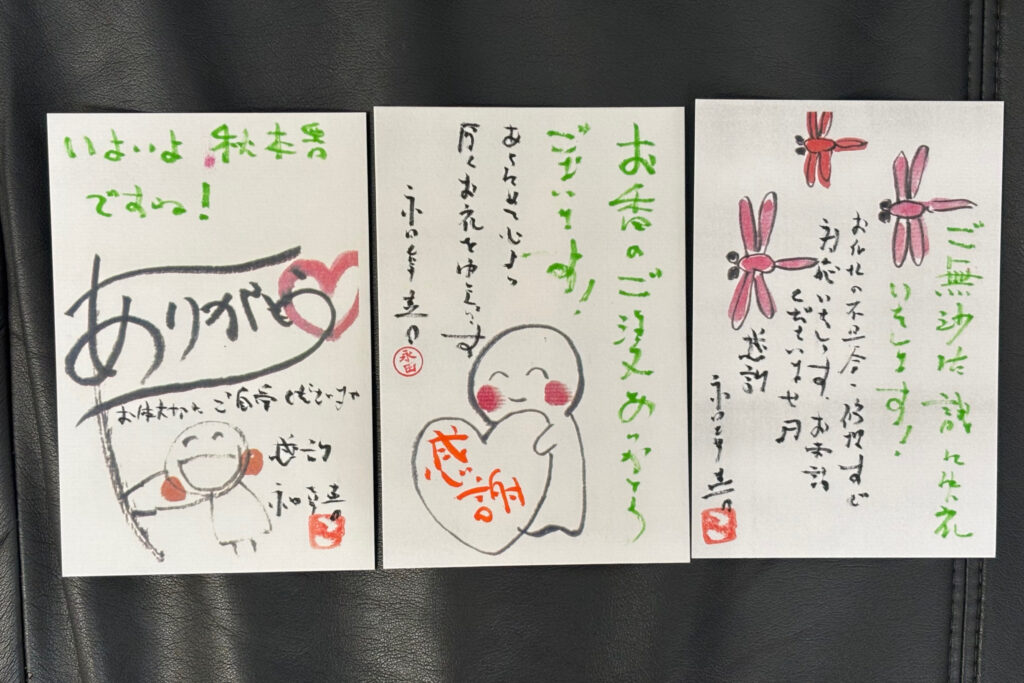 いよいよ 秋本番
ですね！
ありがとう
お体大切に、ご自愛くださいませ
感謝
お香のご注文ありがとう
ございます！
あらためて心より
厚くお礼をゆします
感謝
永田
ご無沙汰誠に失礼
いたします！
お仏壇の不具合、修理まで
対応いたします、お電話
くださいませ
感謝